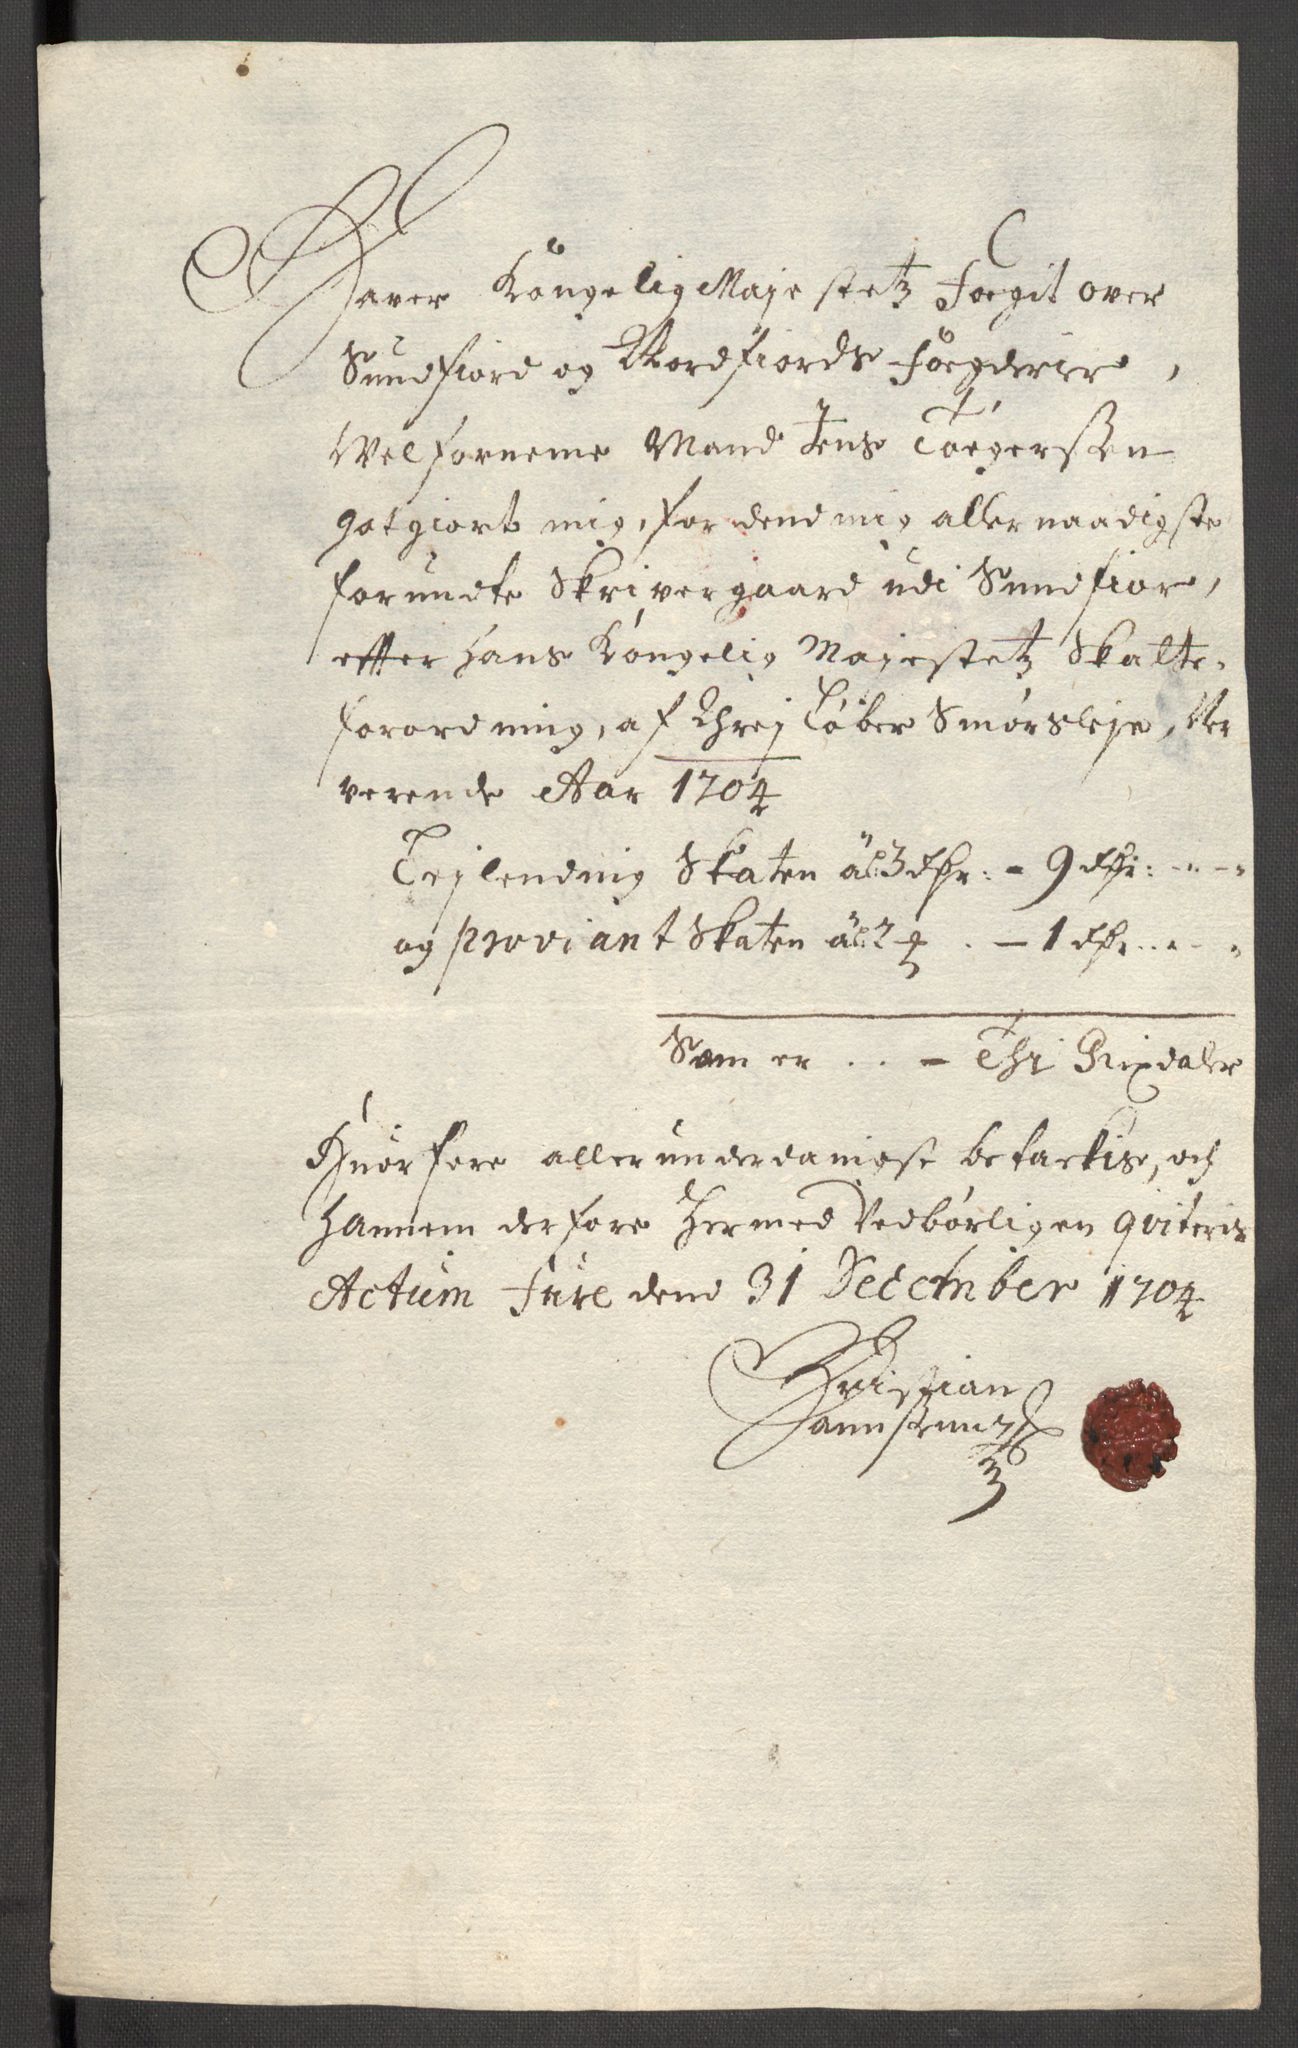 Haver Kongelig Majestetz Foegit over
Sundfiord og Nordfiords Foegderier,
Welforneme Mand Jens Toegerssen
gotgiort mig, for dend mig allernaadigste
forundte Skrivergaard udi Sundfior,
effter Hans Kongelig Majestetz Skatte-
forordning, af Threj Løber Smørsleje, Ner
verende Aar 1704
Lejlending Skaten à l: 3 dlr: - 9 dlr:
og proviant Skaten à l: 2 - 1 dlr:
Som er . . - Thi Rixdaler
Huorfore allerunderdanigst betackis, och
Hannem derfore Hermed Vedbørligen qviteris
Actum Fure dend 31 December 1704
Christian